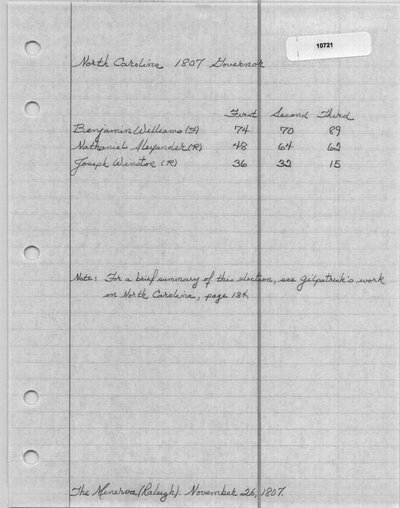 10721
North Carolina 1807 Governor
First Second Third
Benjamin Williams (F) 74 70 89
Nathaniel Alexander (R) 48 64 62
Joseph Winston (R) 36 32 15
Note: For a brief summary of this election, see Gilpatrick's work
on North Carolina, page
The Minerva (Raleigh). November 26, 1807.